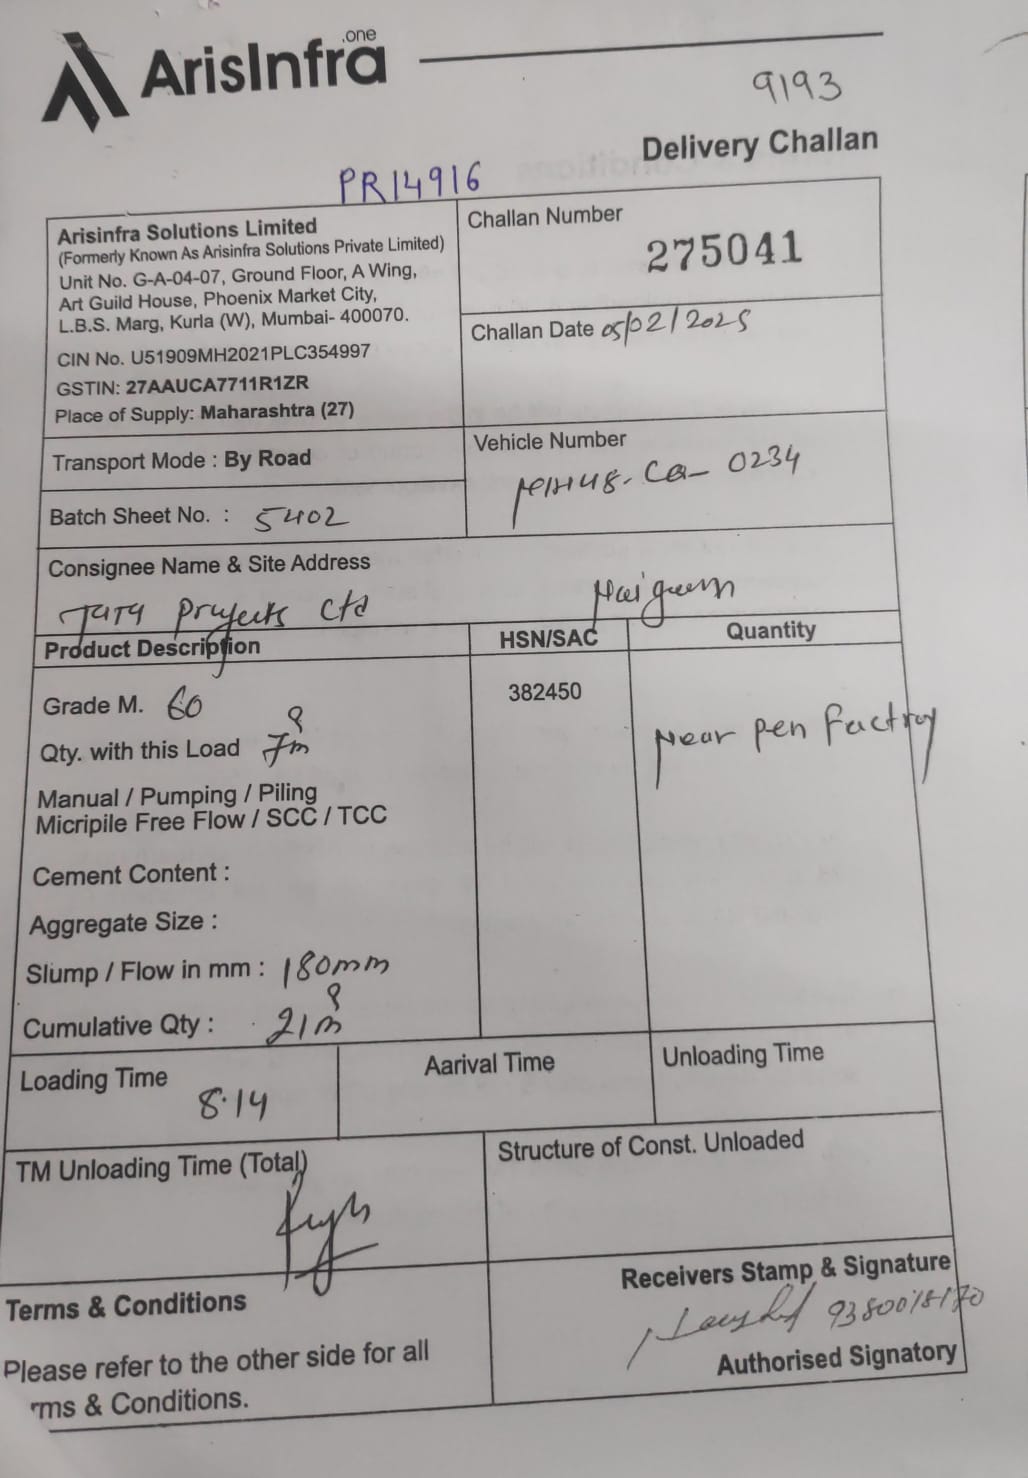 .one
ArisInfra
9193
Delivery Challan
PR14916
Arisinfra Solutions Limited
(Formerly Known As Arisinfra Solutions Private Limited)
Unit No. G-A-04-07, Ground Floor, A Wing,
Art Guild House, Phoenix Market City,
L.B.S. Marg, Kurla (W), Mumbai- 400070.
CIN No. U51909MH2021PLC354997
GSTIN: 27AAUCA7711R1ZR
Place of Supply: Maharashtra (27)
Challan Number
275041
Challan Date 05/02/2025
Transport Mode : By Road
Vehicle Number
MH48-CQ- 0234
Batch Sheet No. : 5402
Consignee Name & Site Address
Tata Projects Ltd Naigaon
Product Description HSN/SAC Quantity
Grade M. 60 382450
Near Pen Factroy
Qty. with this Load 7m³
Manual / Pumping / Piling
Micripile Free Flow / SCC / TCC
Cement Content :
Aggregate Size :
Slump / Flow in mm : 180mm
Cumulative Qty : 21m³
Loading Time 8.14 Aarival Time Unloading Time
TM Unloading Time (Total)
Structure of Const. Unloaded
Terms & Conditions
Please refer to the other side for all
rms & Conditions.
Receivers Stamp & Signature
Authorised Signatory